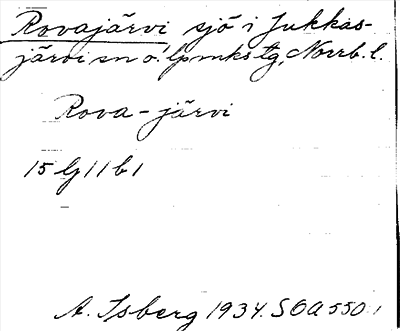 Rovajärvi sjö i Jukkas-
järvi sn o. lpmks tg, Norrb. l.
Rova-järvi
15 lj 11 b 1
A. Isberg 1934. SOA 550:1